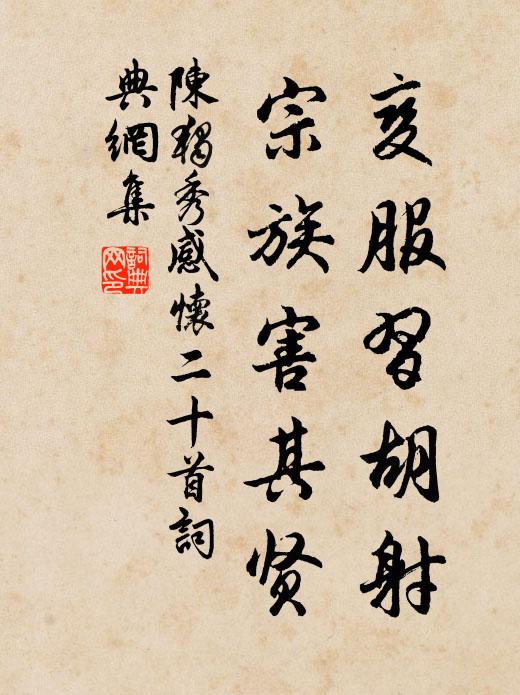 变服習胡射
宗族害其贤
陳独秀感懷二十首詞
典網集
詞典
网印